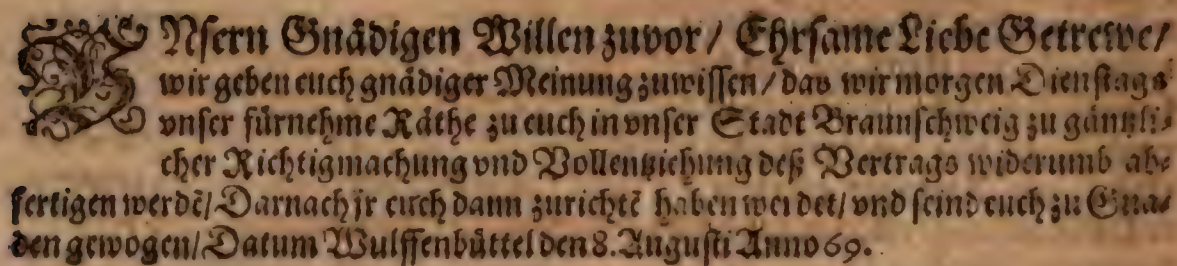 VNsern Gnädigen Willen zuvor / Ehrsame Liebe Getrewe /
wir geben euch gnädiger Meinung zuwissen / das wir morgen Dienstags
vnser fürnehme Räthe zu euch in vnser Stadt Braunschweig zu gäntzli-
cher Richtigmachung vnd Vollentziehung deß Vertrags widerumb ab-
fertigen werdẽ / Darnach jr euch dann zurichtẽ haben werdet / vnd seind euch zu Gna-
den gewogen / Datum Wulffenbüttel den 8. Augusti Anno 69.